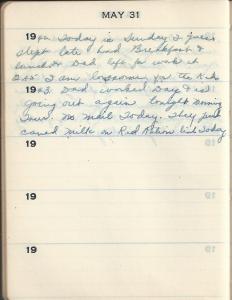 MAY 31
1942 Today is Sunday I guess
slept late had Breakfast &
lunch Dad left for work at
2:45 I am lonesome for the Kids
1943. Dad worked Day & is
going out again tonight Morning
Tour. No Mail Today. They just
caned Milk on Red Ration list Today
19
19
19